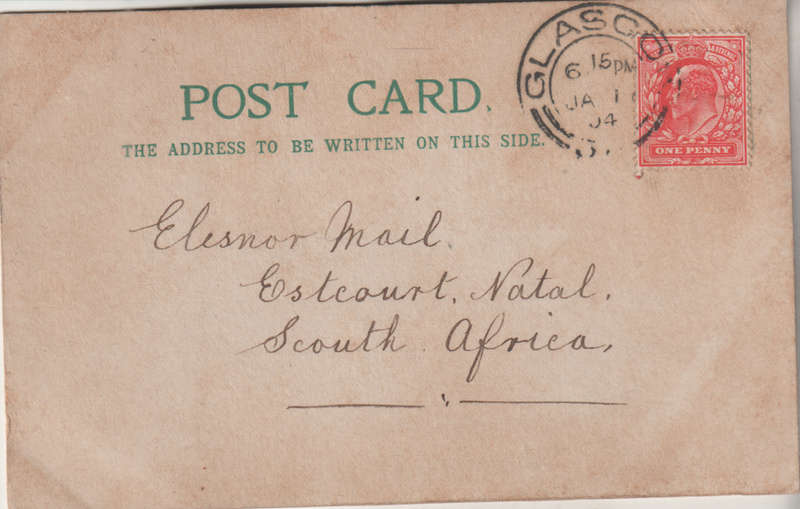 POST CARD.
THE ADDRESS TO BE WRITTEN ON THIS SIDE.
GLASGO
6.15PM
JA 1
04
ONE PENNY
Elesnor Mail.
Estcourt, Natal.
Scouth Africa,